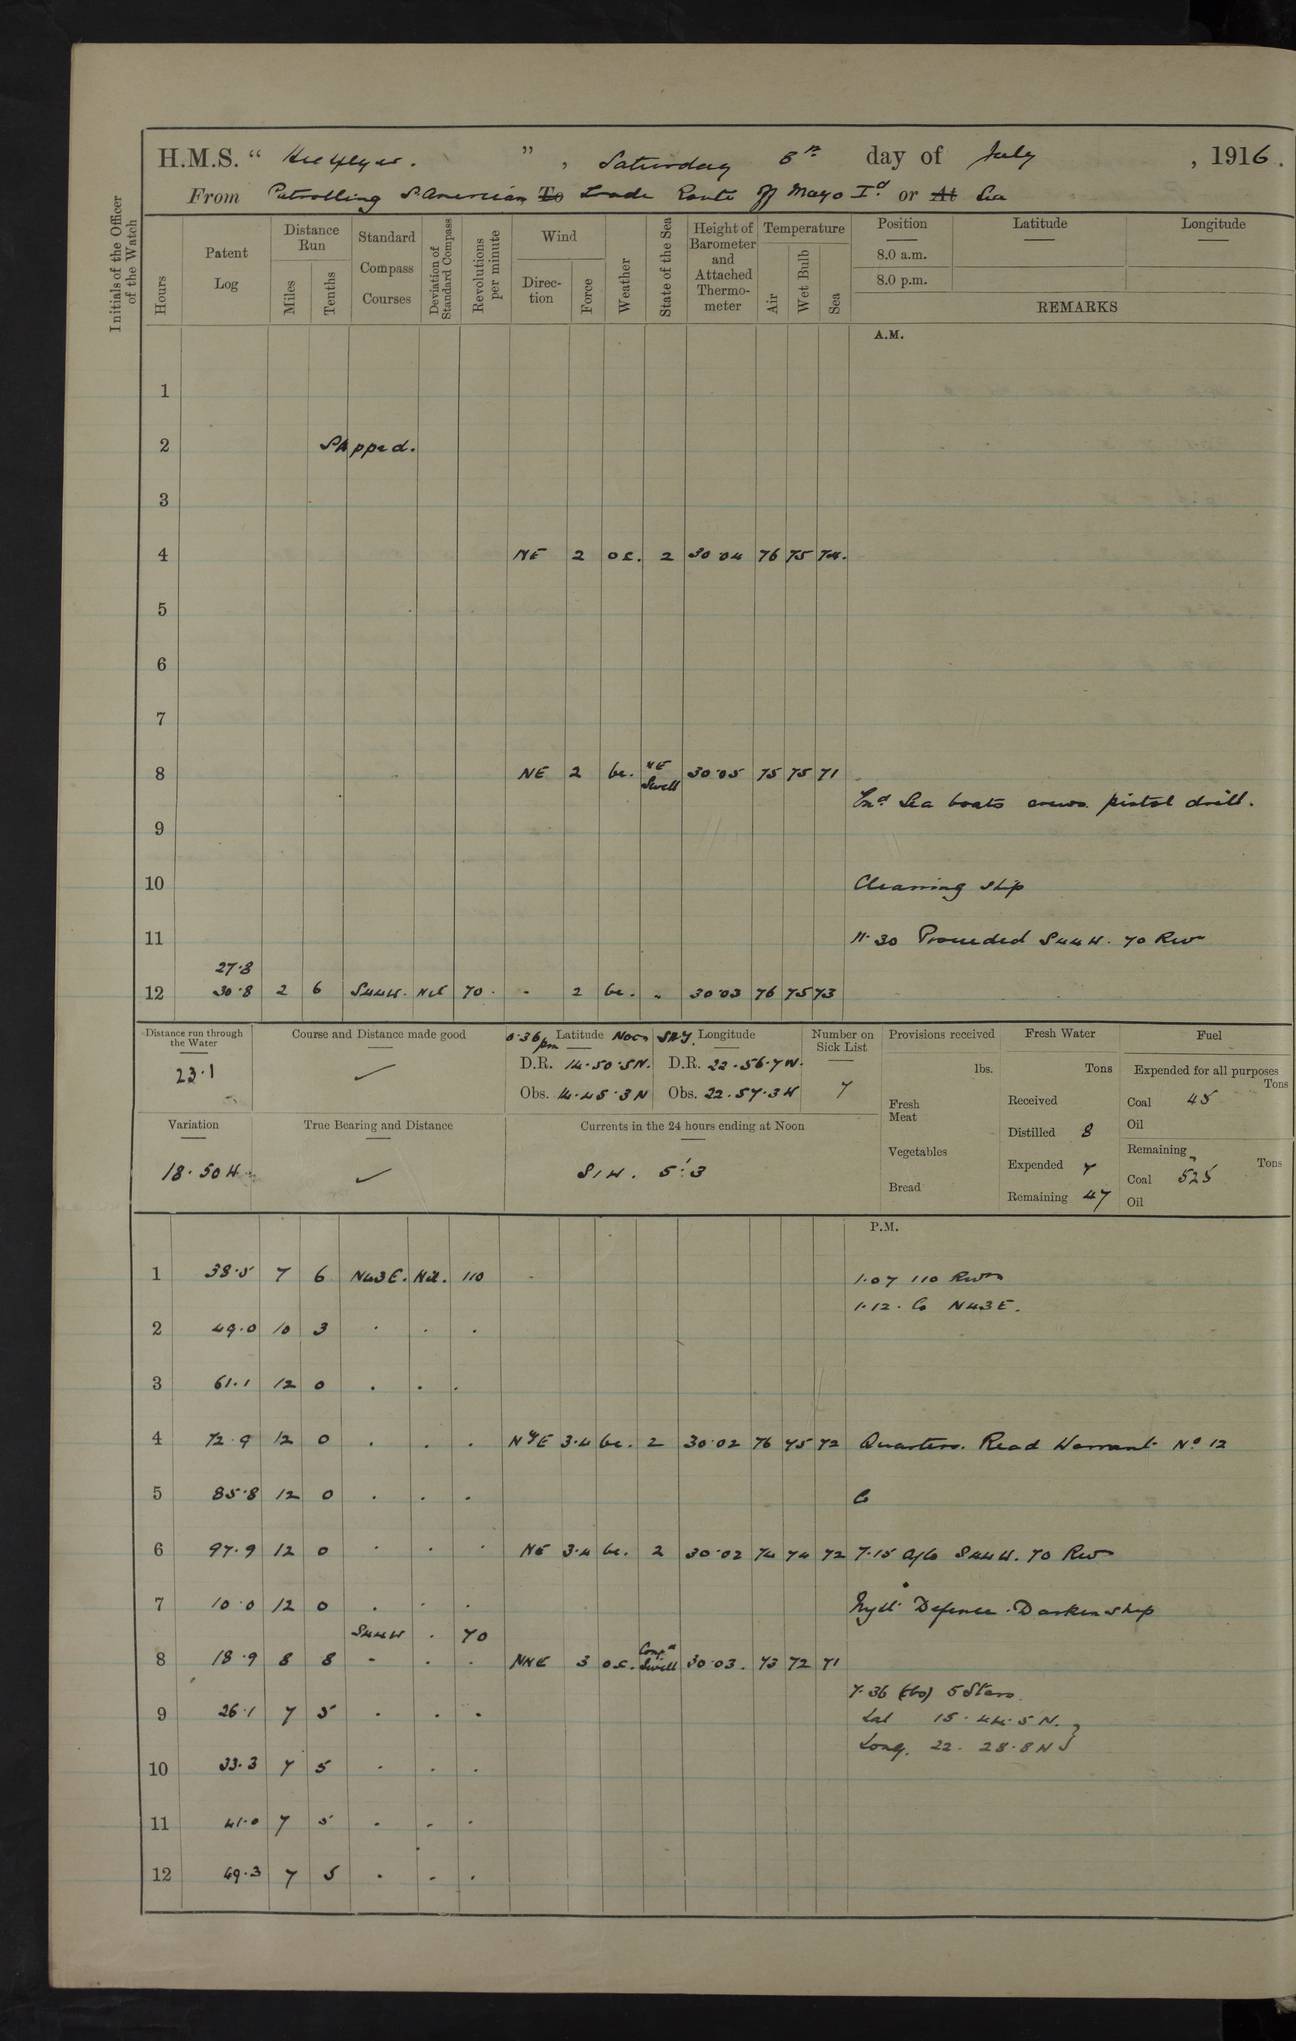 H.M.S. " Highflyer. ", Saturday 8th day of July, 1916.
From Patrolling S. American To Trade Route off Mayo Id or At Sea
Initials of the Officer of the Watch
Hours
Patent Log
Distance Run
Miles
Tenths
Standard Compass Courses
Deviation of Standard Compass
Revolutions per minute
Wind
Direction
Force
Weather
State of the Sea
Height of Barometer and Attached Thermometer
Temperature
Air
Wet Bulb
Sea
Position Latitude Longitude
8.0 a.m.
8.0 p.m.
REMARKS
A.M.
1
2 Stopped.
3
4 NE 2 oc. 2 30.04 76 75 74.
5
6
7
8 NE 2 bc. NE Swell 30.05 75 75 71
Exd Sea boats crews pistol drill.
9
10 Cleaning ship
11 11.30 Proceeded S44W. 70 Revs
27.8
12 30.8 2 6 S44W. Nil 70. - 2 bc. " 30.03 76 75 73
Distance run through the Water
23.1
Course and Distance made good
0.36 pm Latitude Noon
D.R. 14.50.5N.
Obs. 14.45.3N
Longitude
D.R. 22.56.7W.
Obs. 22.57.3W
Number on Sick List
7
Provisions received
lbs.
Fresh Meat
Vegetables
Bread
Fresh Water
Tons
Received
Distilled 8
Expended 7
Remaining 47
Fuel
Expended for all purposes
Tons
Coal 45
Oil
Remaining
Tons
Coal 525
Oil
Variation
18.50W
True Bearing and Distance
Currents in the 24 hours ending at Noon
S1W. 5'.3
P.M.
1 38.5 7 6 N43E. Nil. 110 1.07 110 Revs
1.12. Co N43E.
2 49.0 10 3 . . .
3 61.1 12 0 . . .
4 72.9 12 0 . . . NyE 3.4 bc. 2 30.02 76 75 72 Quarters. Read Warrant No 12
5 85.8 12 0 . . . Co
6 97.9 12 0 . . . NE 3.4 bc. 2 30.02 74 74 72 7.15 a/co S44W. 70 Revs
7 10.0 12 0 . . . Night Defence. Darken ship
S44W . 70
8 18.9 8 8 - . . NNE 3 oc. Confd Swell 30.03. 73 72 71
7.36 (obs) 5 Stars.
9 26.1 7 5 . . . Lat 15.44.5 N.
Long. 22. 28.8 W
10 33.3 7 5 . . .
11 41.0 7 5 . . .
12 49.3 7 5 . . .